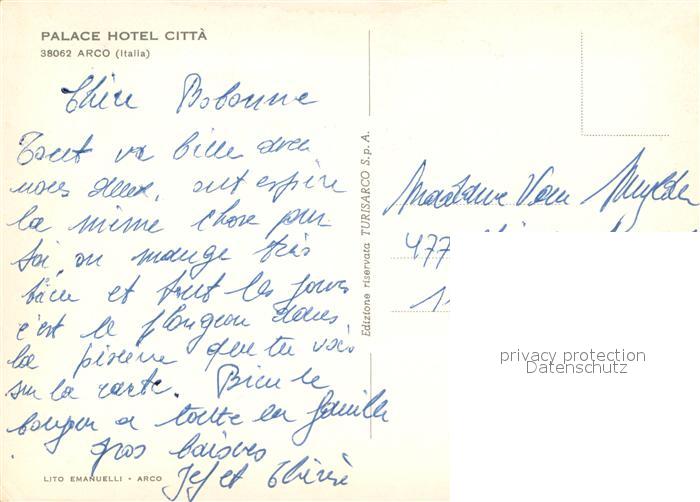 PALACE HOTEL CITTÀ
38062 ARCO (Italia)
Chère Bobonne
Tout va bien avec
nous deux, ont espère
la même chose pour
toi, on mange très
bien et tout les jours
c'est le plongeon dans
la piscine que tu vois
sur la carte. Bien le
bonjour a toute la famille
gros baisers
Jef et Thérèse
LITO EMANUELLI - ARCO
Edizione riservata TURISARCO S.p.A.
Madame Van
477
privacy protection
Datenschutz